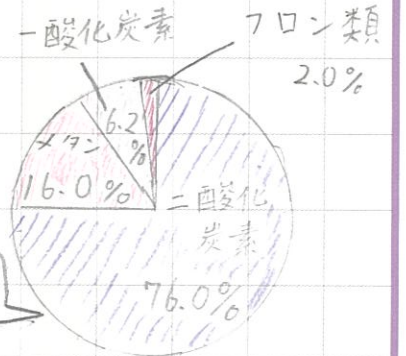 一酸化炭素
フロン類
2.0%
6.2
%
メタン
16.0%
二酸化
炭素
76.0%